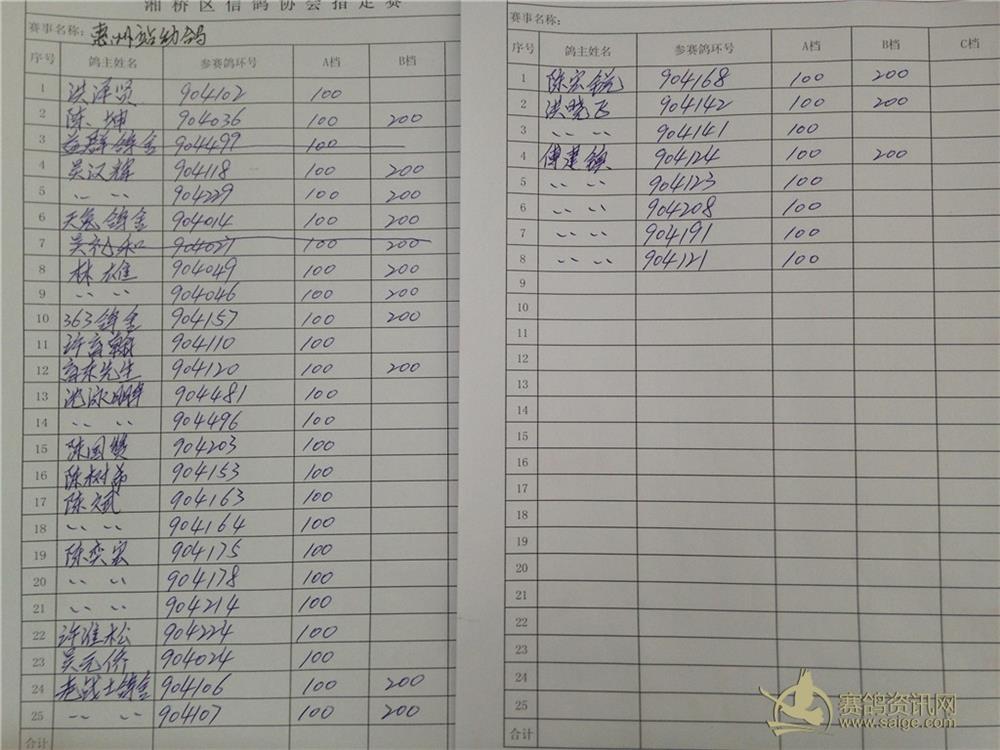 湘桥区信鸽协会指定赛
赛事名称: 惠州站幼鸽
序号 鸽主姓名 参赛鸽环号 A档 B档
1 洪泽贤 904102 100
2 陈坤 904036 100 200
3 益群鸽舍 904499 100
4 吴汉辉 904118 100 200
5 〃 〃 904229 100 200
6 天兔鸽舍 904014 100 200
7 吴礼和 904021 100 200
8 林雄 904049 100 200
9 〃 〃 904046 100 200
10 363鸽舍 904157 100 200
11 904110 100
12 先生 904120 100 200
13 904481 100
14 〃 〃 904496 100
15 陈国赞 904203 100
16 陈树弟 904153 100
17 陈斌 904163 100
18 〃 〃 904164 100
19 陈奕宏 904175 100
20 〃 〃 904178 100
21 〃 〃 904214 100
22 许淮松 904224 100
23 吴元侨 904024 100
24 老战士鸽舍 904106 100 200
25 〃 〃 904107 100 200
合计
赛事名称:
序号 鸽主姓名 参赛鸽环号 A档 B档 C档
1 陈宏 904168 100 200
2 洪晓飞 904142 100 200
3 〃 〃 904141 100
4 傅建镇 904124 100 200
5 〃 〃 904123 100
6 〃 〃 904208 100
7 〃 〃 904191 100
8 〃 〃 904121 100
9
10
11
12
13
14
15
16
17
18
19
20
21
22
23
24
25
合计
赛鸽资讯网
www.saige.com